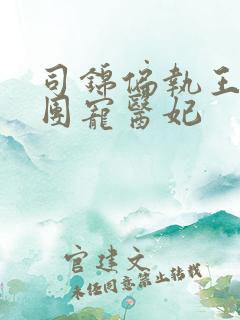 司錦偏執王
團寵醫妃
官建文
未任同意禁止转载